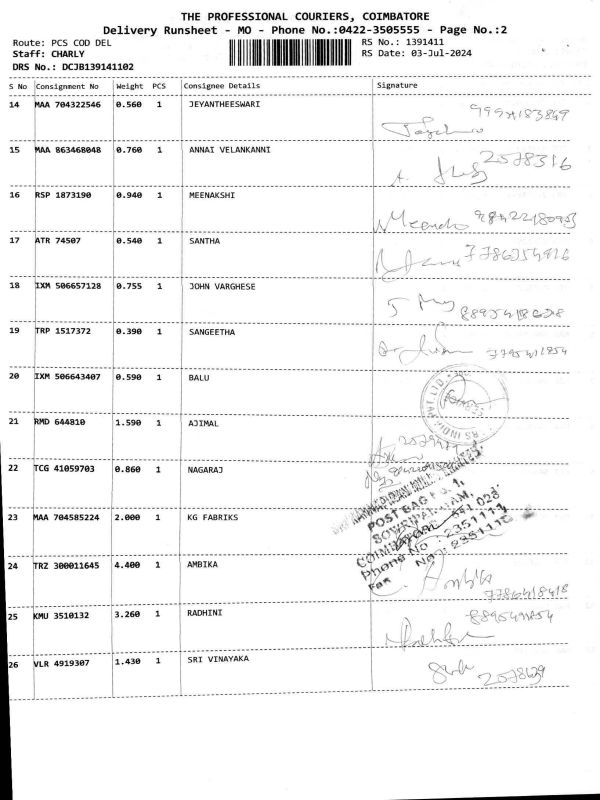 THE PROFESSIONAL COURIERS, COIMBATORE
Delivery Runsheet - MO - Phone No.:0422-3505555 - Page No.:2
Route: PCS COD DEL
RS No.: 1391411
Staff: CHARLY
RS Date: 03-Jul-2024
DRS No.: DCJB139141102
S No Consignment No Weight PCS Consignee Details Signature
14 MAA 704322546 0.560 1 JEYANTHEESWARI
15 MAA 863468048 0.760 1 ANNAI VELANKANNI 2578316
16 RSP 1873190 0.940 1 MEENAKSHI
17 ATR 74507 0.540 1 SANTHA
18 IXM 506657128 0.755 1 JOHN VARGHESE
19 TRP 1517372 0.390 1 SANGEETHA
20 IXM 506643407 0.590 1 BALU
RS INDIA PVT LTD
21 RMD 644810 1.590 1 AJIMAL
22 TCG 41059703 0.860 1 NAGARAJ
POST BAG No. 1,
SOWRIPALAYAM,
COIMBATORE - 641 028
Phone No : 2351111
Fax No : 2351110
23 MAA 704585224 2.000 1 KG FABRIKS
24 TRZ 300011645 4.400 1 AMBIKA Ambika
7786418418
25 KMU 3510132 3.260 1 RADHINI
26 VLR 4919307 1.430 1 SRI VINAYAKA